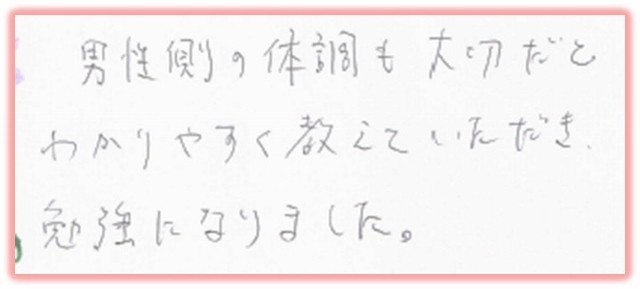 男性側の体調も大切だと
わかりやすく教えていただき、
勉強になりました。